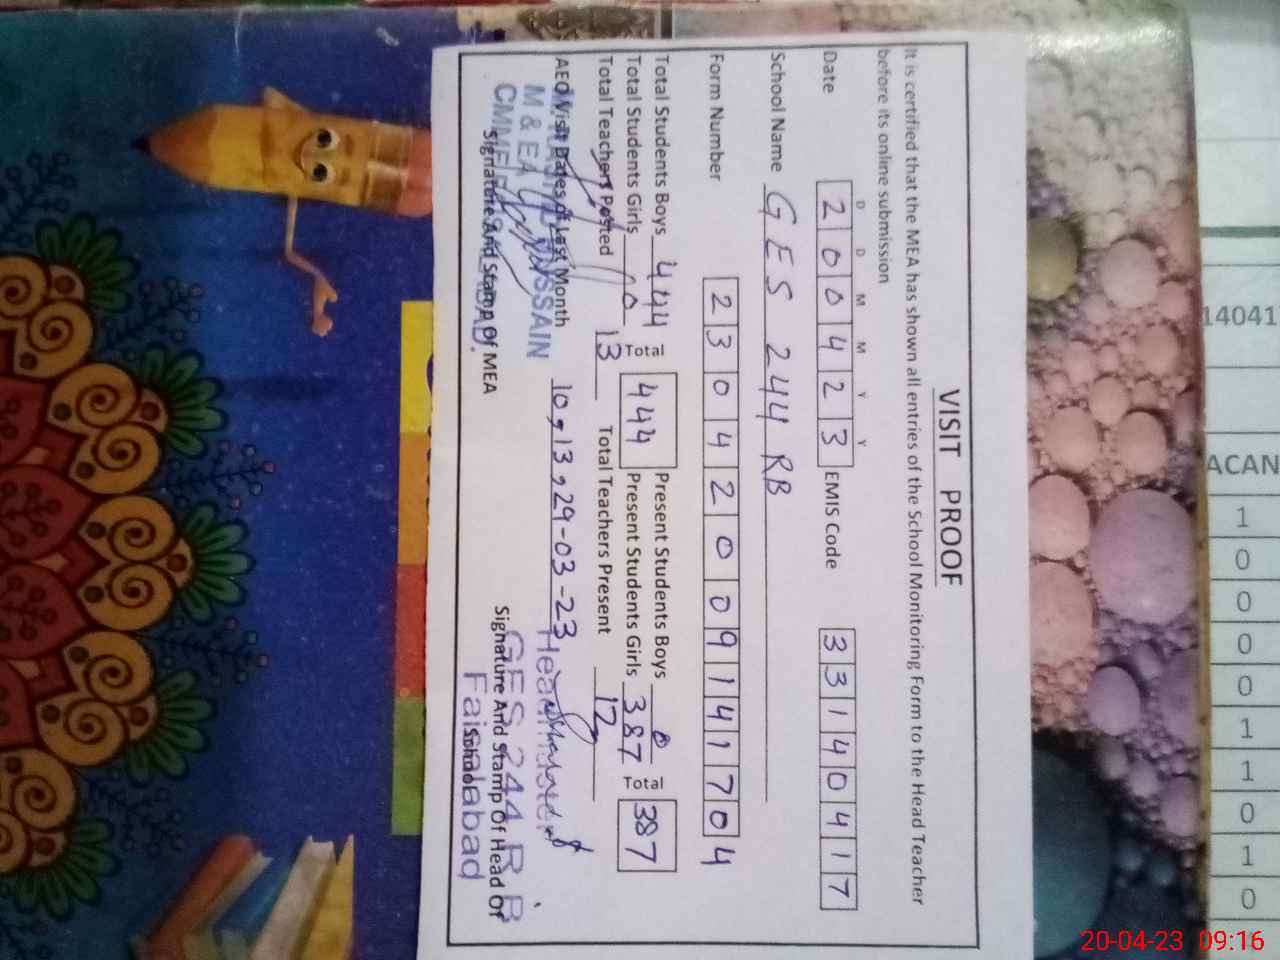 VISIT PROOF
It is certified that the MEA has shown all entries of the School Monitoring Form to the Head Teacher
before its online submission
D D M M Y Y
Date 200423 EMIS Code 33140417
School Name GES 244 RB
Form Number 2304200914170 4
Total Students Boys 444 Total 444 Present Students Boys 0 Total 387
Total Students Girls 0 Present Students Girls 387
Total Teachers Posted 13 Total Teachers Present 12
AEO Visit Dates of Last Month 10,13,29-03-23
HUSSAIN
M & EA
CMMF
Signature And Stamp Of MEA
Headmaster
GES 244 R B
Signature And Stamp Of Head Of
School
Faisalabad
14041
ACAN
1
0
0
0
0
1
1
0
1
0
20-04-23 09:16